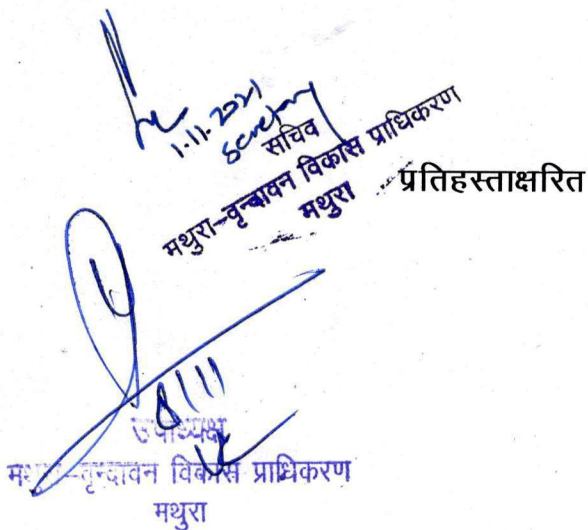 1.11.2021
Secretary
सचिव
मथुरा-वृन्दावन विकास प्राधिकरण
मथुरा
प्रतिहस्ताक्षरित
8/11
उपाध्यक्ष
मथुरा-वृन्दावन विकास प्राधिकरण
मथुरा